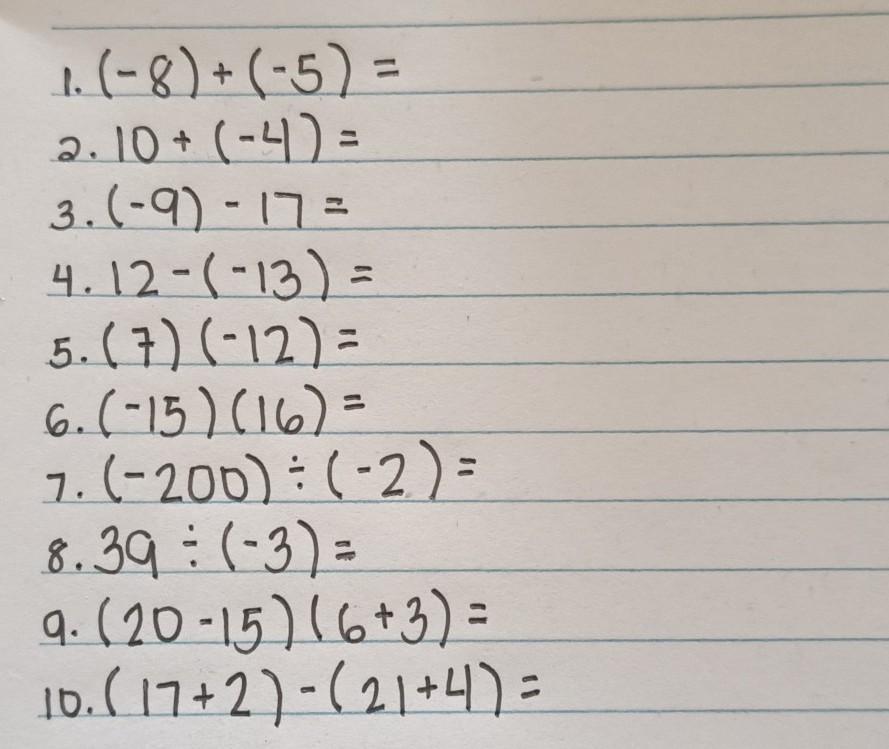 1. (-8) + (-5) =
2. 10 + (-4) =
3. (-9) - 17 =
4. 12 - (-13) =
5. (7) (-12) =
6. (-15) (16) =
7. (-200) ÷ (-2) =
8. 39 ÷ (-3) =
9. (20 - 15) (6 + 3) =
10. (17 + 2) - (21 + 4) =